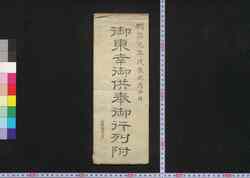 明治元年戊辰九月廿日
御東幸御供奉御行列附